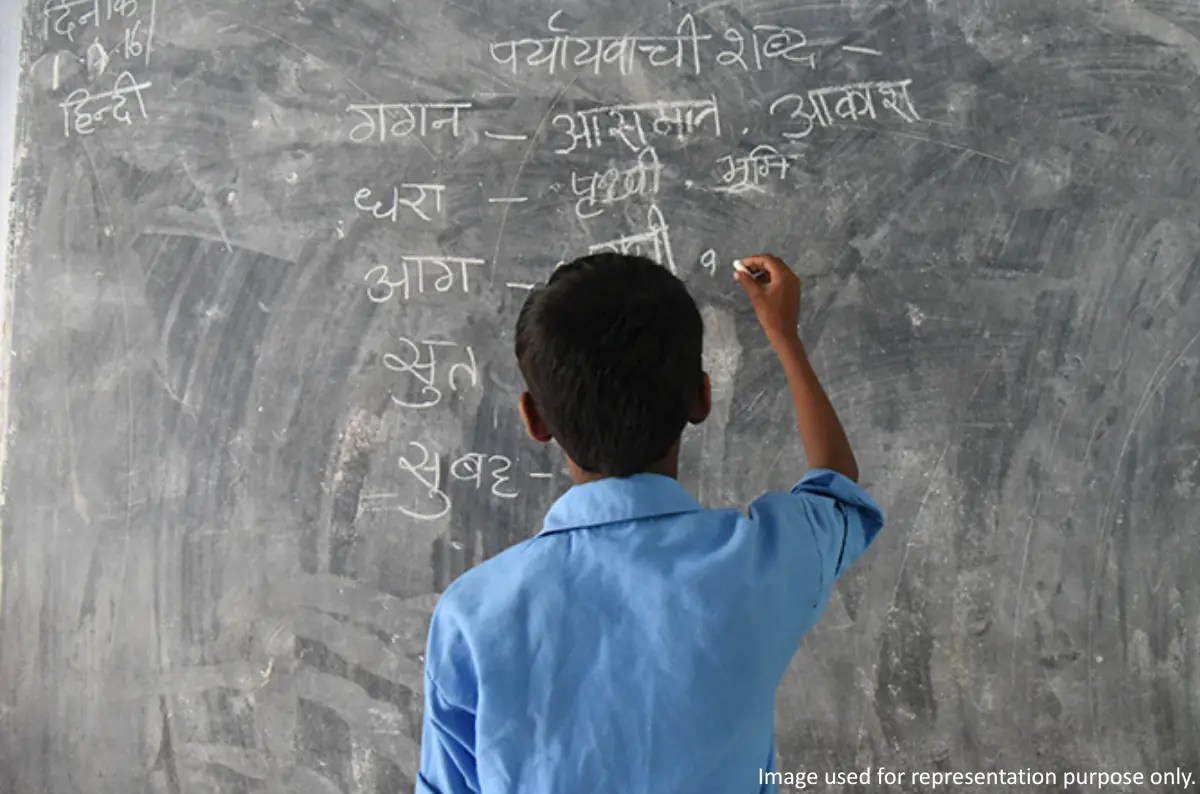 दिनांक
1.9.16
हिन्दी
पर्यायवाची शब्द –
गगन – आसमान . आकाश
धरा – पृथ्वी . भूमि
आग –
सुत
सुबह -
Image used for representation purpose only.